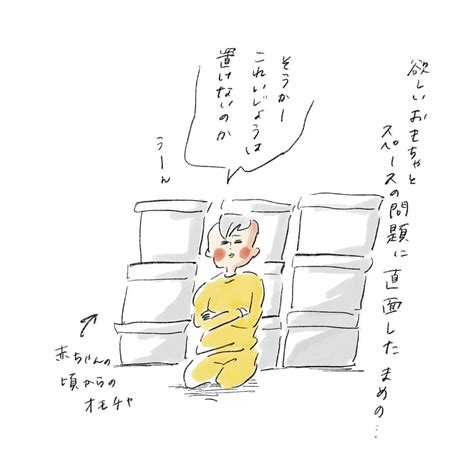 欲しいおもちゃと
スペースの問題に直面したまめの…
そうかー
これいじょうは
置けないのか
うーん
赤ちゃんの
頃からの
オモチャ